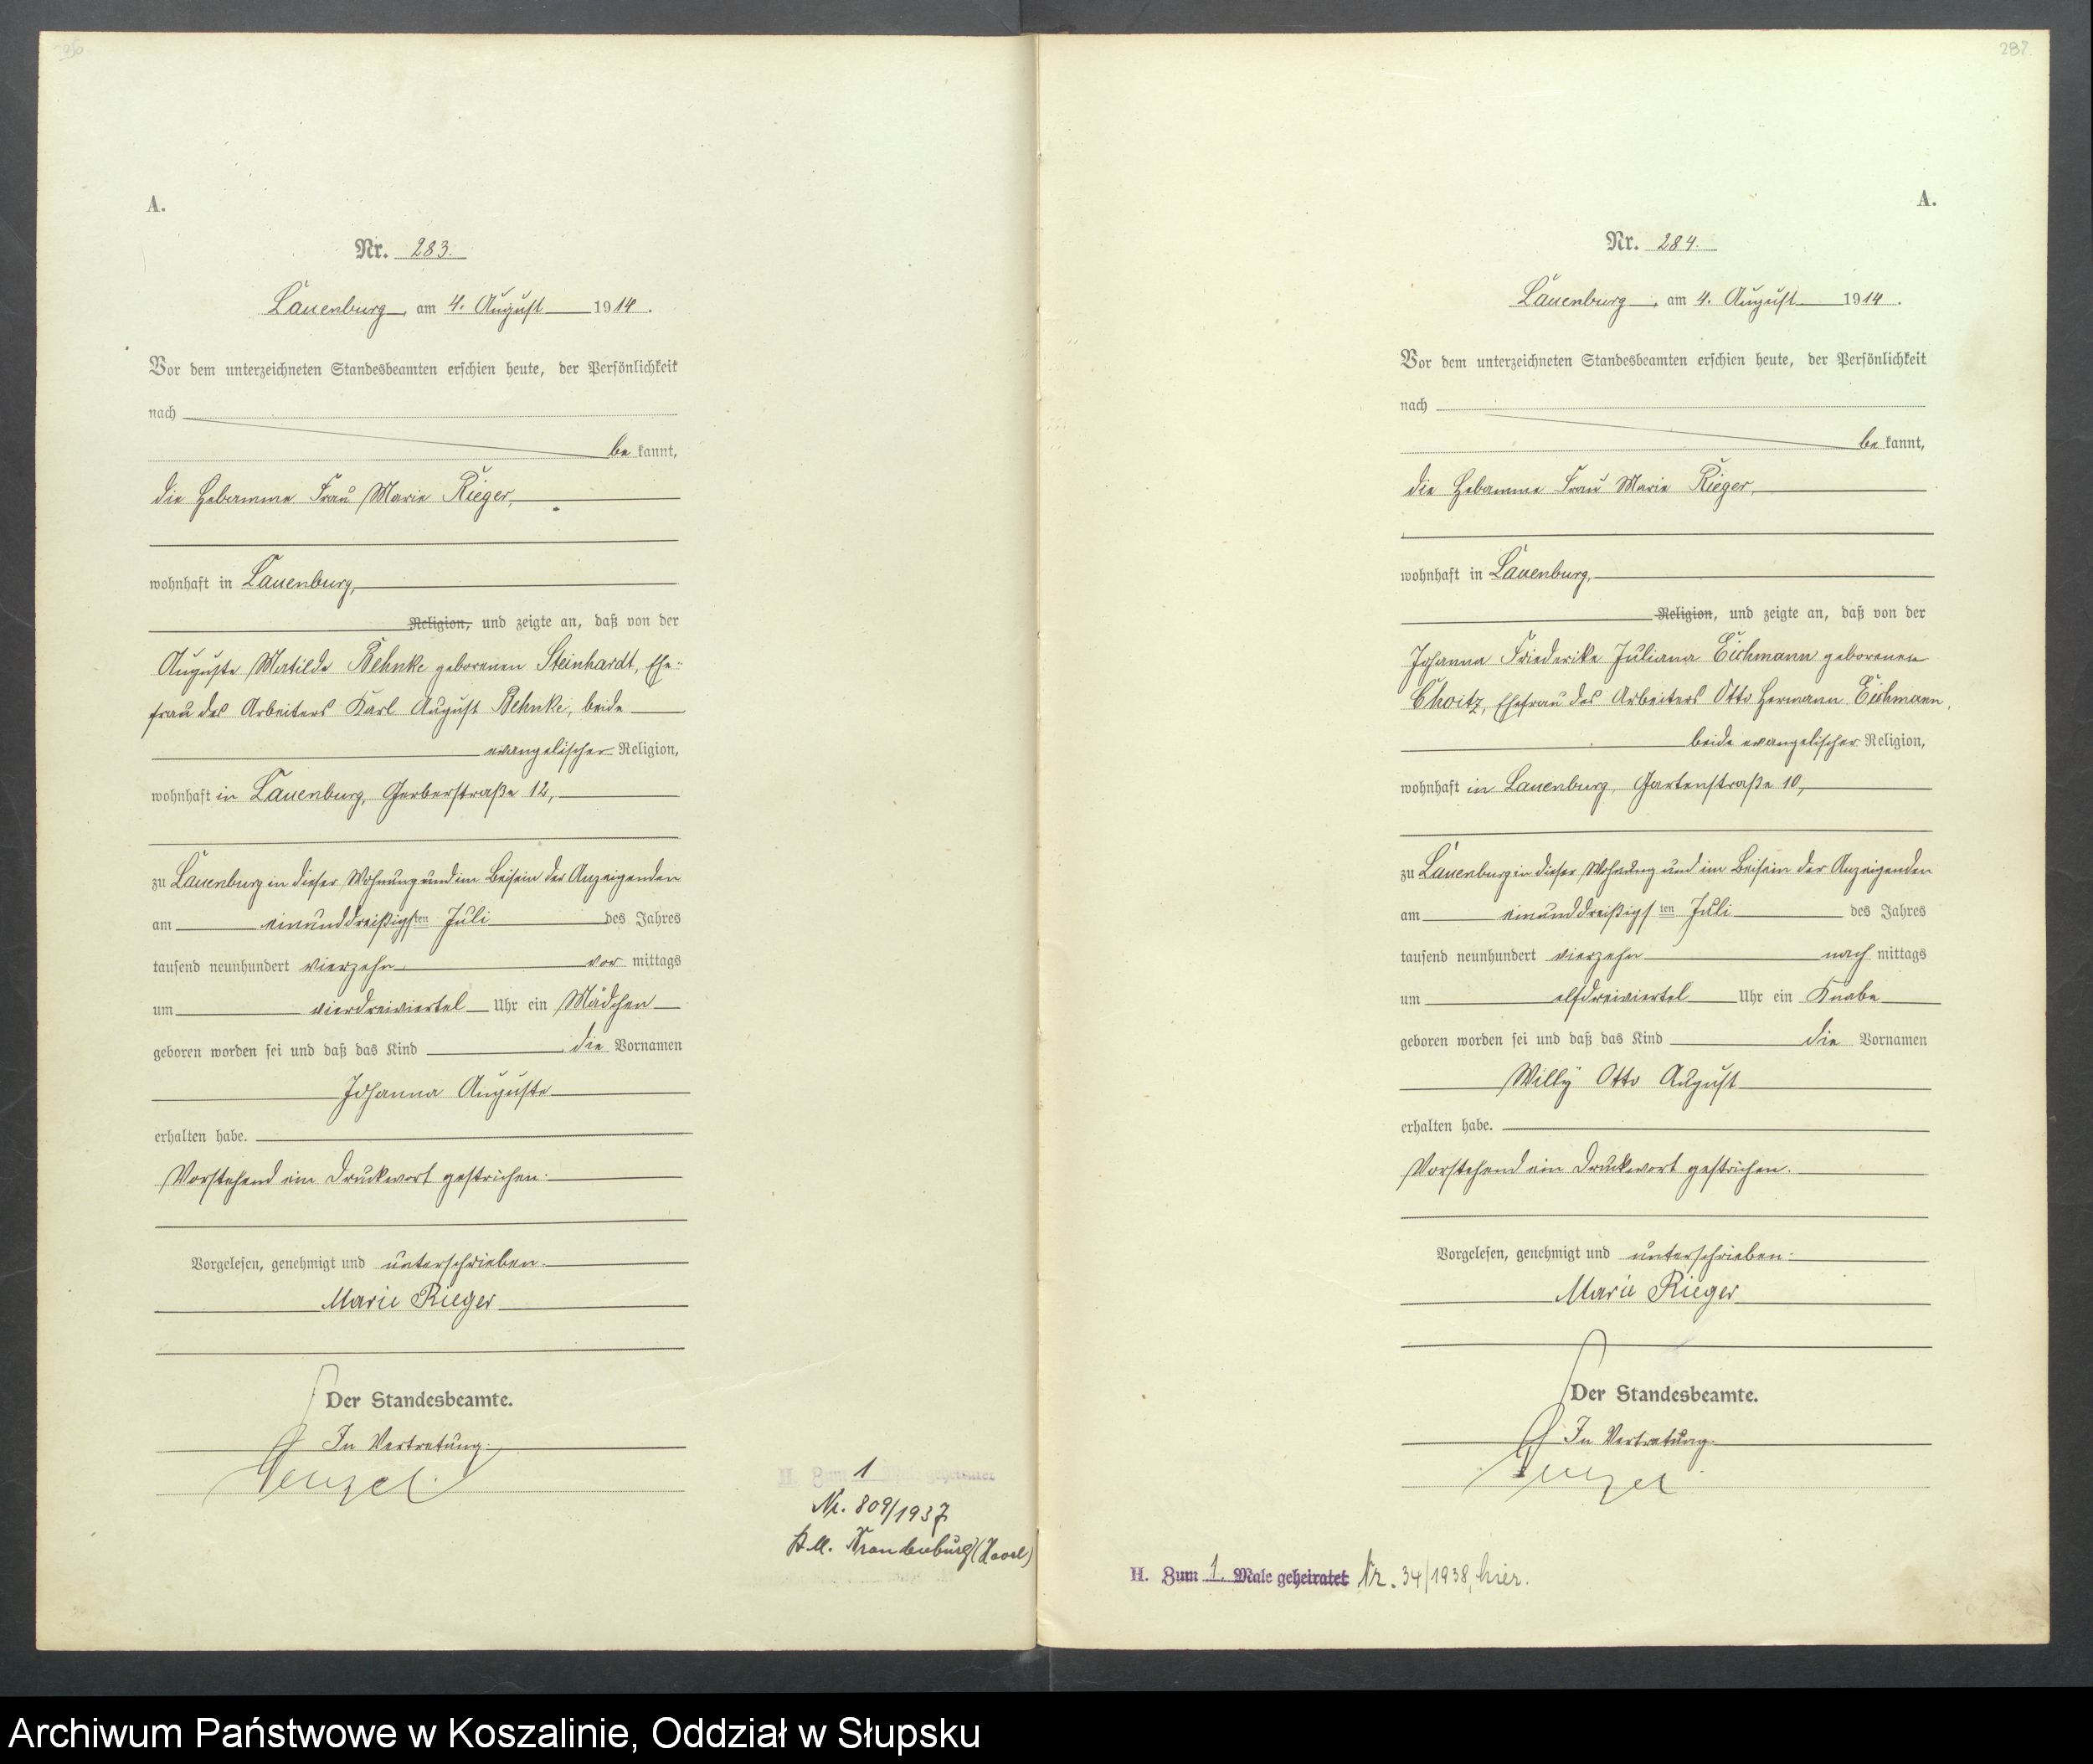 A.
Nr. 283.
Lauenburg, am 4. August 1914.
Vor dem unterzeichneten Standesbeamten erschien heute, der Persönlichkeit
nach
be kannt,
die Hebamme Frau Marie Rieger,
wohnhaft in Lauenburg,
Religion, und zeigte an, daß von der
Auguste Matilde Behnke geborenen Steinhardt, Ehe-
frau des Arbeiters Karl August Behnke, beide
evangelischer Religion,
wohnhaft in Lauenburg, Gerberstraße 12,
zu Lauenburg in dieser Wohnung und im Beisein der Anzeigenden
am einunddreißigsten Juli des Jahres
tausend neunhundert vierzehn vor mittags
um vierdreiviertel Uhr ein Mädchen
geboren worden sei und daß das Kind die Vornamen
Johanna Auguste
erhalten habe.
Vorstehend ein Druckwort gestrichen.
Vorgelesen, genehmigt und unterschrieben.
Marie Rieger
Der Standesbeamte.
In Vertretung.
H. Zum 1 Male geheiratet
Nr. 809/1937
Brandenburg (Havel)
282.
A.
Nr. 284.
Lauenburg, am 4. August 1914.
Vor dem unterzeichneten Standesbeamten erschien heute, der Persönlichkeit
nach
be kannt,
die Hebamme Frau Marie Rieger,
wohnhaft in Lauenburg,
Religion, und zeigte an, daß von der
Johanna Friederike Juliana Eichmann geborenen
Choitz, Ehefrau des Arbeiters Otto Hermann Eichmann,
beide evangelischer Religion,
wohnhaft in Lauenburg, Gartenstraße 10,
zu Lauenburg in dieser Wohnung und im Beisein der Anzeigenden
am einunddreißigsten Juli des Jahres
tausend neunhundert vierzehn nach mittags
um elfdreiviertel Uhr ein Knabe
geboren worden sei und daß das Kind die Vornamen
Willy Otto August
erhalten habe.
Vorstehend ein Druckwort gestrichen.
Vorgelesen, genehmigt und unterschrieben.
Marie Rieger
Der Standesbeamte.
In Vertretung.
H. Zum 1. Male geheiratet Nr. 34/1938, hier.
Archiwum Państwowe w Koszalinie, Oddział w Słupsku